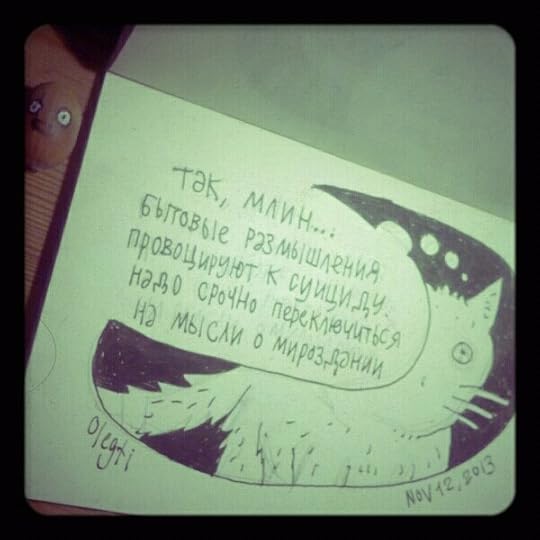 так, млин...
бытовые размышления
провоцируют к суициду.
надо срочно переключиться
на мысли о мироздании
Olegti
NOV 12, 2013